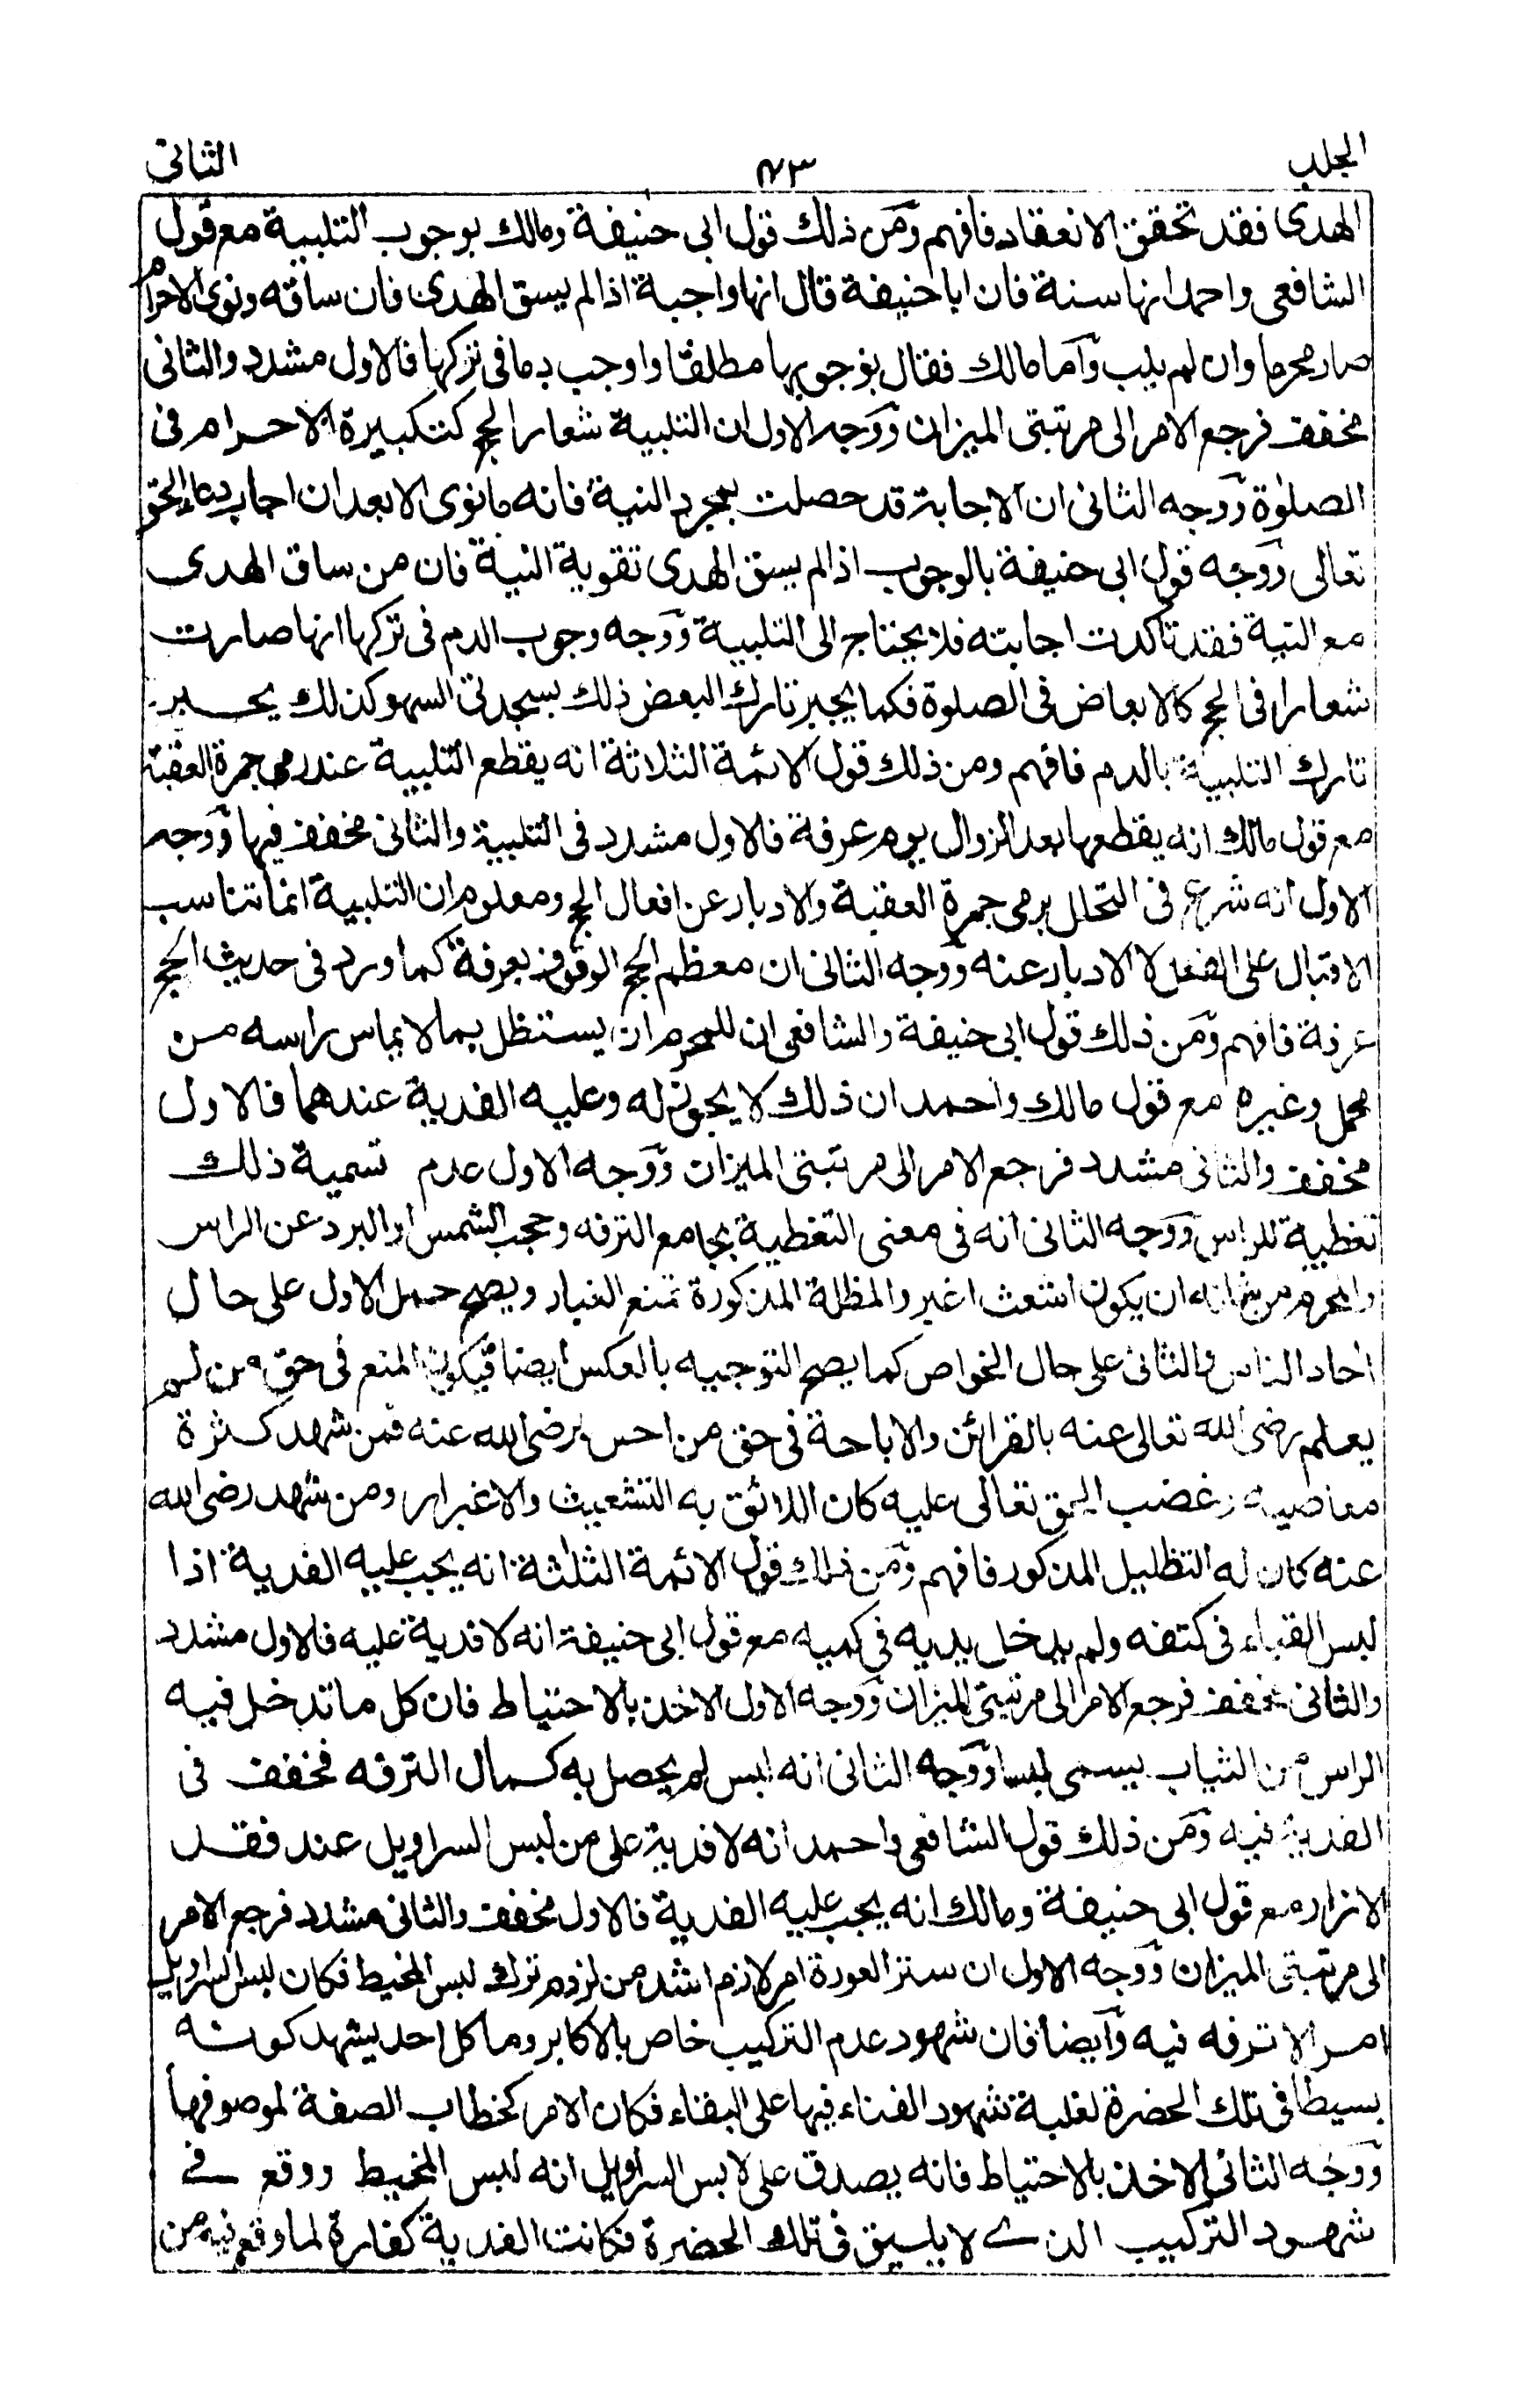 الجلد ٤٣ الثانى
الهدى فقد تحقق الانعقاد فافهم ومن ذلك قول ابى حنيفة ومالك بوجوب التلبية مع قول
الشافعى واحمد انها سنة فان ابا حنيفة قال انها واجبة اذا لم يسق الهدى فان ساقه ونوى الاحرام
صار محرما وان لم يلب وأما مالك فقال بوجوبها مطلقا واوجب دما فى تركها فالاول مشدد والثانى
مخفف فرجع الامر الى مرتبتى الميزان ووجه الاول ان التلبية شعار الحج كتكبيرة الاحرام فى
الصلوٰة ووجه الثانى ان الاجابة قد حصلت بمجرد النية فانه ما نوى الا بعد ان اجاب دعاء الحق
تعالى ووجه قول ابى حنيفة بالوجوب اذا لم يسق الهدى تقوية النية فان من ساق الهدى
مع النية فقد تأكدت اجابته فلا يحتاج الى التلبية ووجه وجوب الدم فى تركها انها صارت
شعارا فى الحج كالابعاض فى الصلوة فكما يجبر تارك البعض ذلك بسجدتى السهو كذلك يجبر
تارك التلبية بالدم فافهم ومن ذلك قول الائمة الثلاثة انه يقطع التلبية عند رمى جمرة العقبة
مع قول مالك انه يقطعها بعد الزوال يوم عرفة فالاول مشدد فى التلبية والثانى مخفف فيها ووجه
الاول انه شرع فى التحلل برمى جمرة العقبة والادبار عن افعال الحج ومعلوم ان التلبية انما تناسب
الاقبال على الفعل لا الادبار عنه ووجه الثانى ان معظم الحج الوقوف بعرفة كما ورد فى حديث الحج
عرفة فافهم ومن ذلك قول ابى حنيفة والشافعى ان للمحرم ان يستظل بما لا يماس راسه من
محمل وغيره مع قول مالك واحمد ان ذلك لا يجوز له وعليه الفدية عندهما فالاول
مخفف والثانى مشدد فرجع الامر الى مرتبتى الميزان ووجه الاول عدم تسمية ذلك
تغطية للراس ووجه الثانى انه فى معنى التغطية بجامع الترفه وحجب الشمس او البرد عن الراس
والمحرم من شانه ان يكون اشعث اغبر والمظلة المذكورة تمنع الغبار ويصح حمل الاول على حال
احاد الناس والثانى على حال الخواص كما يصح التوجيه بالعكس ايضا فيكون المنع فى حق من لم
يعلم رضى الله تعالى عنه بالقرائن والاباحة فى حق من احس برضى الله عنه فمن شهد كثرة
معاصيه وغضب الحق تعالى عليه كان اللائق به التشعيث والاغبرار ومن شهد رضى الله
عنه كان له التظليل المذكور فافهم ومن ذلك قول الائمة الثلثة انه يجب عليه الفدية اذا
لبس القباء فى كتفه ولم يدخل يديه فى كميه مع قول ابى حنيفة انه لا فدية عليه فالاول مشدد
والثانى مخفف فرجع الامر الى مرتبتى الميزان ووجه الاول الاخذ بالاحتياط فان كل ما تدخل فيه
الراس من الثياب يسمى لبسا ووجه الثانى انه لبس لم يحصل به كمال الترفه فخفف فى
الفدية فيه ومن ذلك قول الشافعى واحمد انه لا فدية على من لبس السراويل عند فقد
الازار مع قول ابى حنيفة ومالك انه يجب عليه الفدية فالاول مخفف والثانى مشدد فرجع الامر
الى مرتبتى الميزان ووجه الاول ان ستر العورة امر لازم اشد من لزوم ترك لبس المخيط فكان لبس السراويل
امر الا ترفه فيه وأيضا فان شهود عدم التركيب خاص بالاكابر وما كل احد يشهد كونه
بسيطا فى تلك الحضرة لغلبة شهود الفناء فيها على البقاء فكان الامر كخطاب الصفة لموصوفها
ووجه الثانى الاخذ بالاحتياط فانه يصدق على لابس السراويل انه لبس المخيط ووقع فے
شهود التركيب الذے لا يليق فى تلك الحضرة فكانت الفدية كفارة لما وقع فيه من